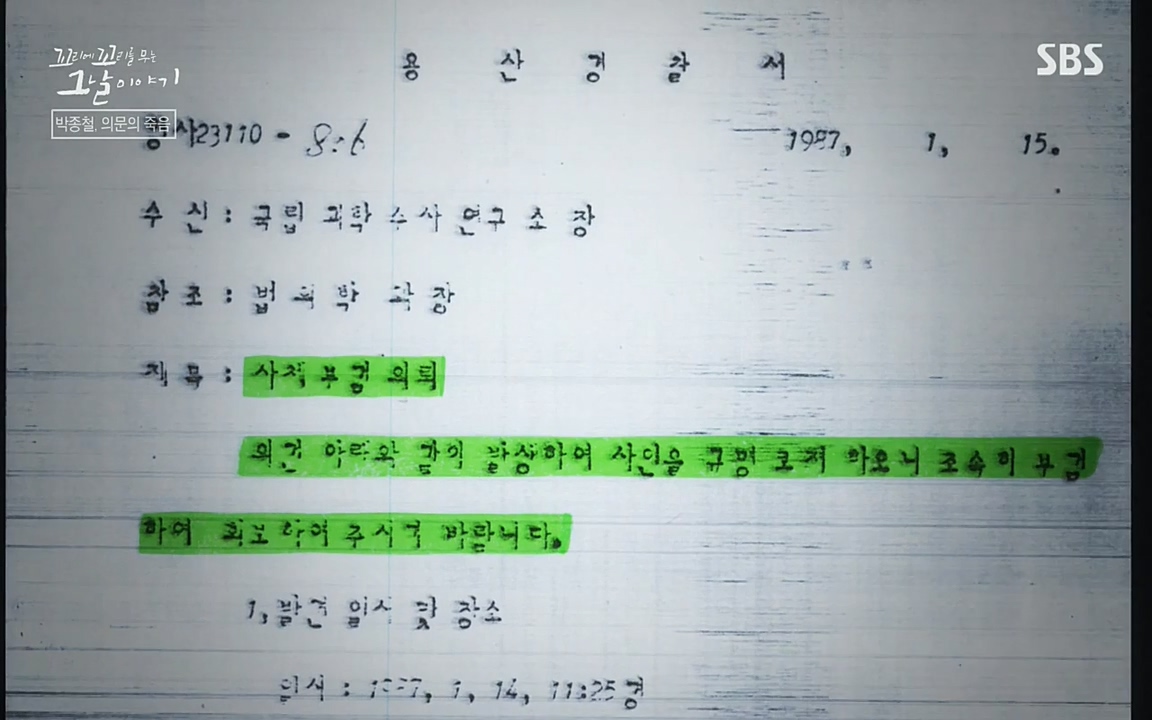 꼬리에 꼬리를 무는
그날 이야기
SBS
박종철, 의문의 죽음
용 산 경 찰 서
형사23110 - 1987, 1, 15.
수 신 : 국립 과학 수사 연구 소 장
참 조 : 법 의 학 과 장
제 목 : 사체 부검 의뢰
의건 아래와 같이 발생하여 사인을 규명 코저 하오니 조속히 부검
하여 회보 하여 주시기 바랍니다.
1, 발견 일시 및 장소
일시 : 1987, 1, 14, 11:25경